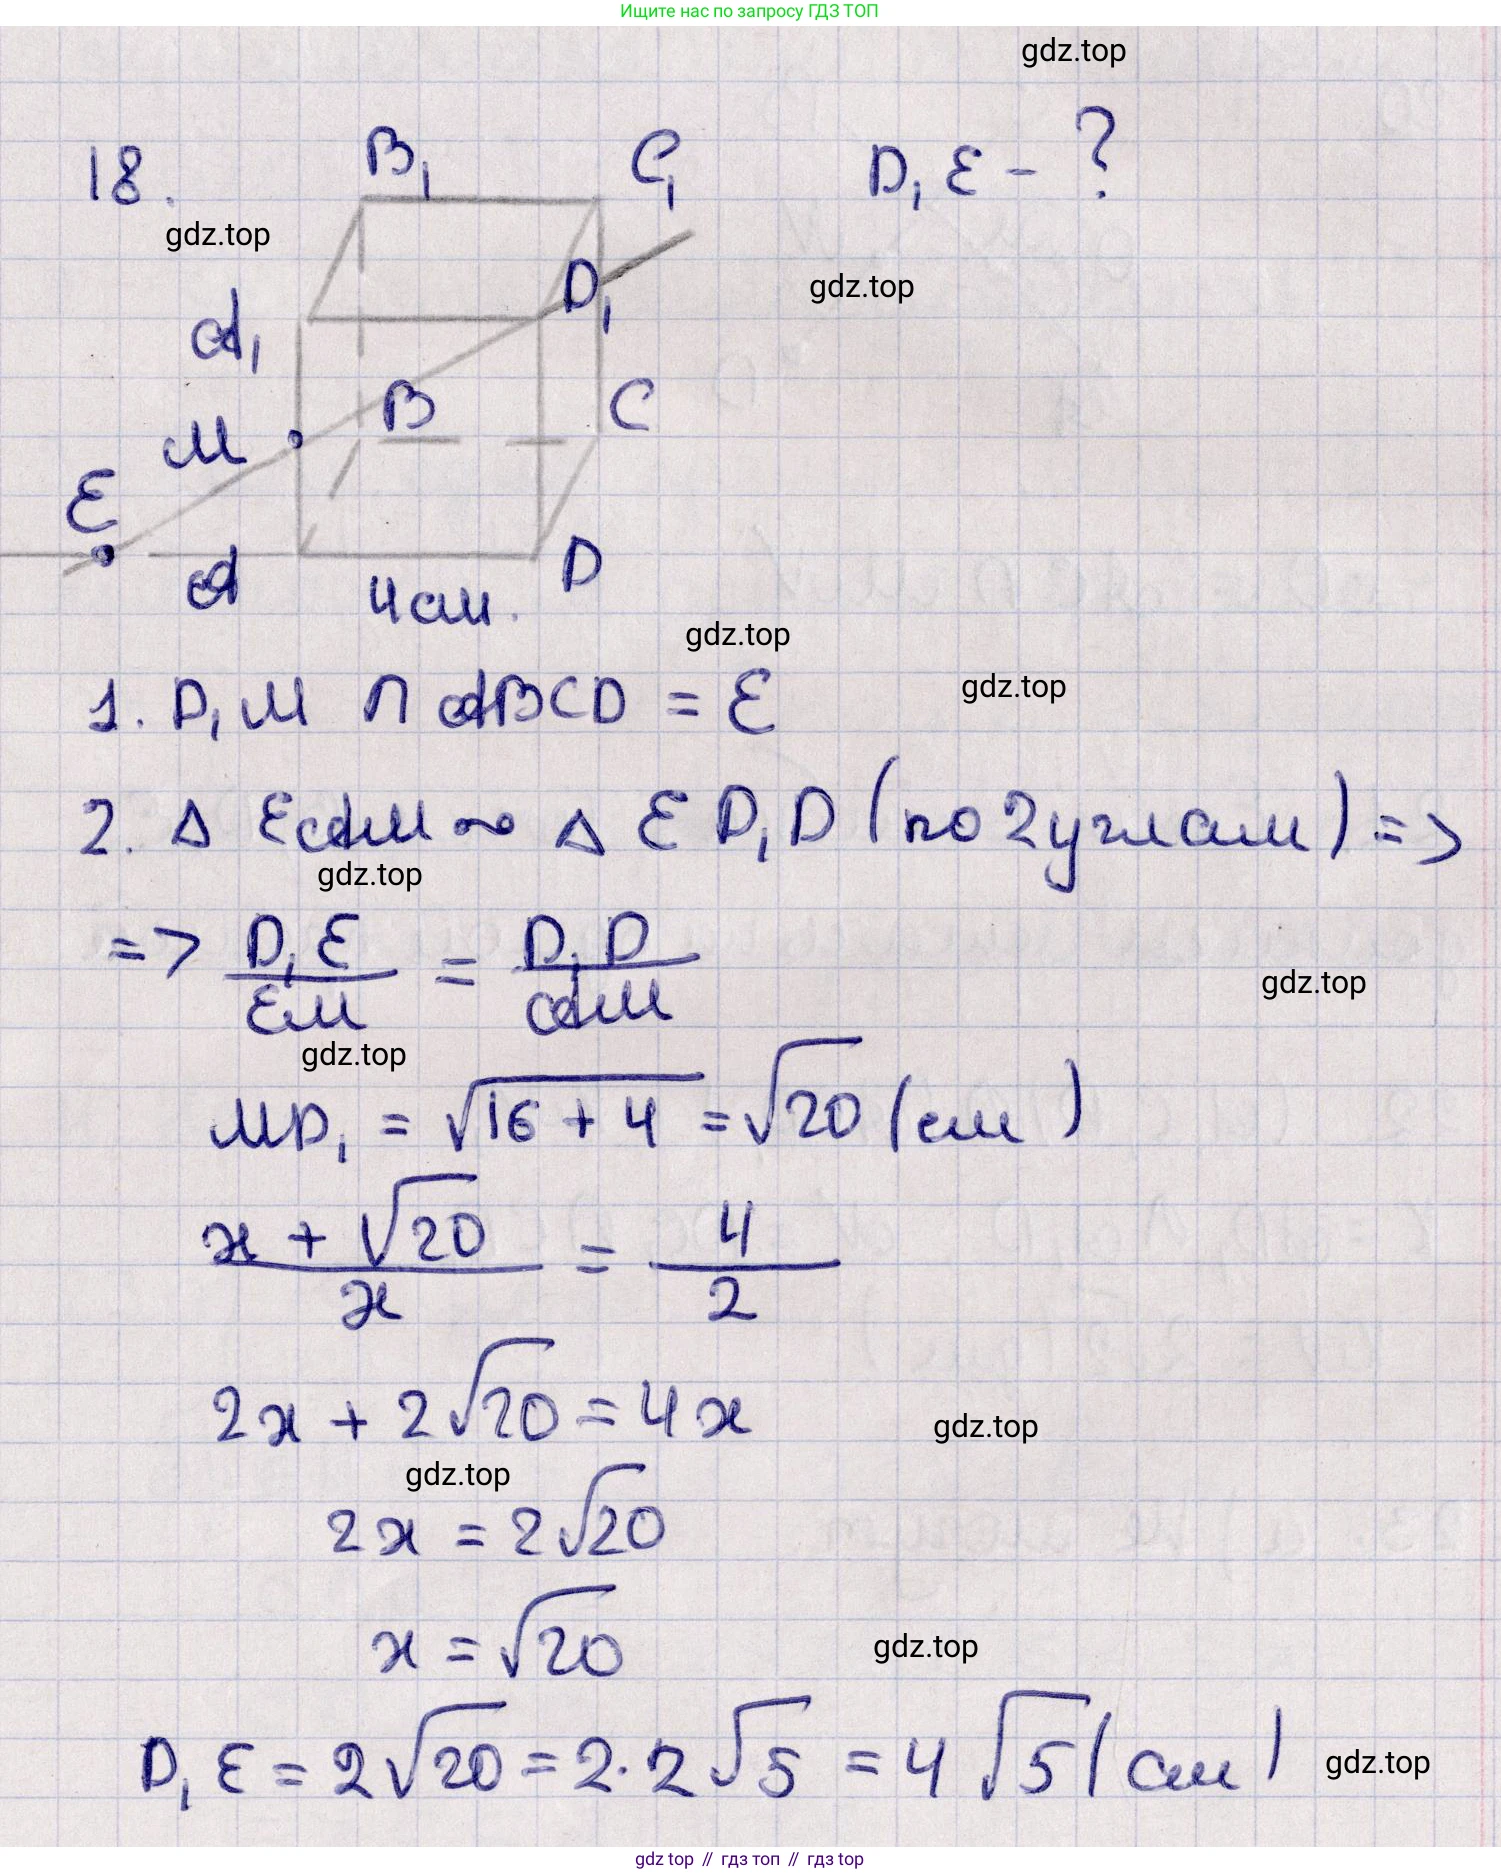 Ищите нас по запросу ГДЗ ТОП
gdz.top
18.
B₁
C₁
D₁E - ?
gdz.top
gdz.top
D₁
A₁
B
C
M
E
A
4см.
D
gdz.top
1. D₁M ∩ ABCD = E
gdz.top
2. Δ EAM ~ Δ ED₁D (по 2 углам) =>
gdz.top
=> D₁E/EM = D₁D/AM
gdz.top
gdz.top
MD₁ = √(16 + 4) = √20 (см)
(x + √20)/x = 4/2
2x + 2√20 = 4x
gdz.top
gdz.top
2x = 2√20
x = √20
gdz.top
D₁E = 2√20 = 2·2√5 = 4√5 (см)
gdz.top
gdz top // гдз топ // гдз top